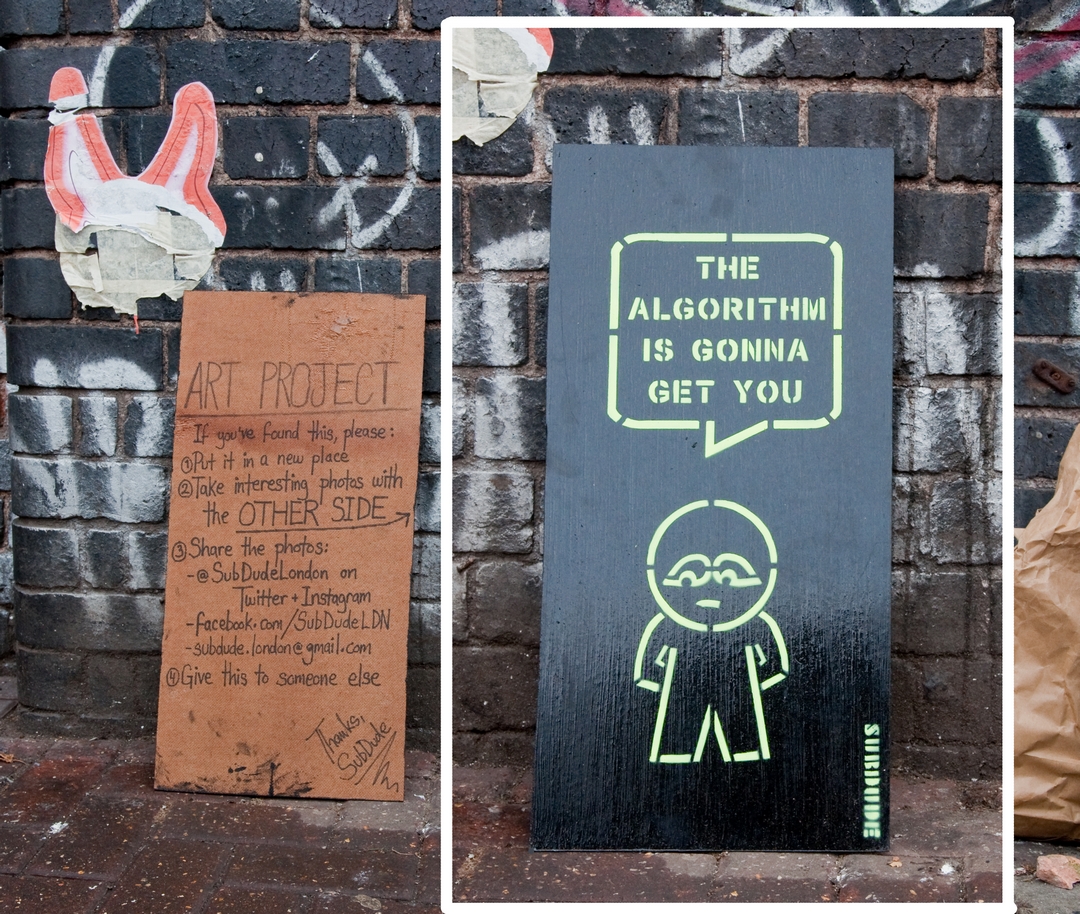 ART PROJECT
If you've found this, please:
①Put it in a new place
②Take interesting photos with
the OTHER SIDE
③Share the photos:
-@SubDudeLondon on
Twitter + Instagram
-facebook.com/SubDudeLDN
-subdude.london@gmail.com
④Give this to someone else
Thanks,
SubDude
THE
ALGORITHM
IS GONNA
GET YOU
SUBDUDE